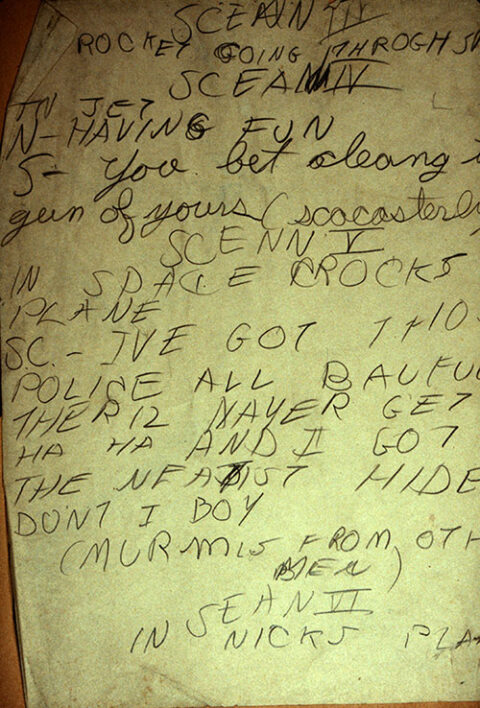 SCEAIN III
ROCKET GOING THROGH SK
SCEAM IV
IN JET
N-HAVING FUN
S- You bet cleang i
gun of yours (scocasterly
SCENN V
IN SPACE CROCKS
PLANE
SC.- IVE GOT THO
POLICE ALL BAUFUL
THERIZ NAYER GET
HA HA AND I GOT
THE NEATIST HIDE
DONT I BOY
(MURMIS FROM OTH
MEN)
SEAN VI
IN NICKS PLA